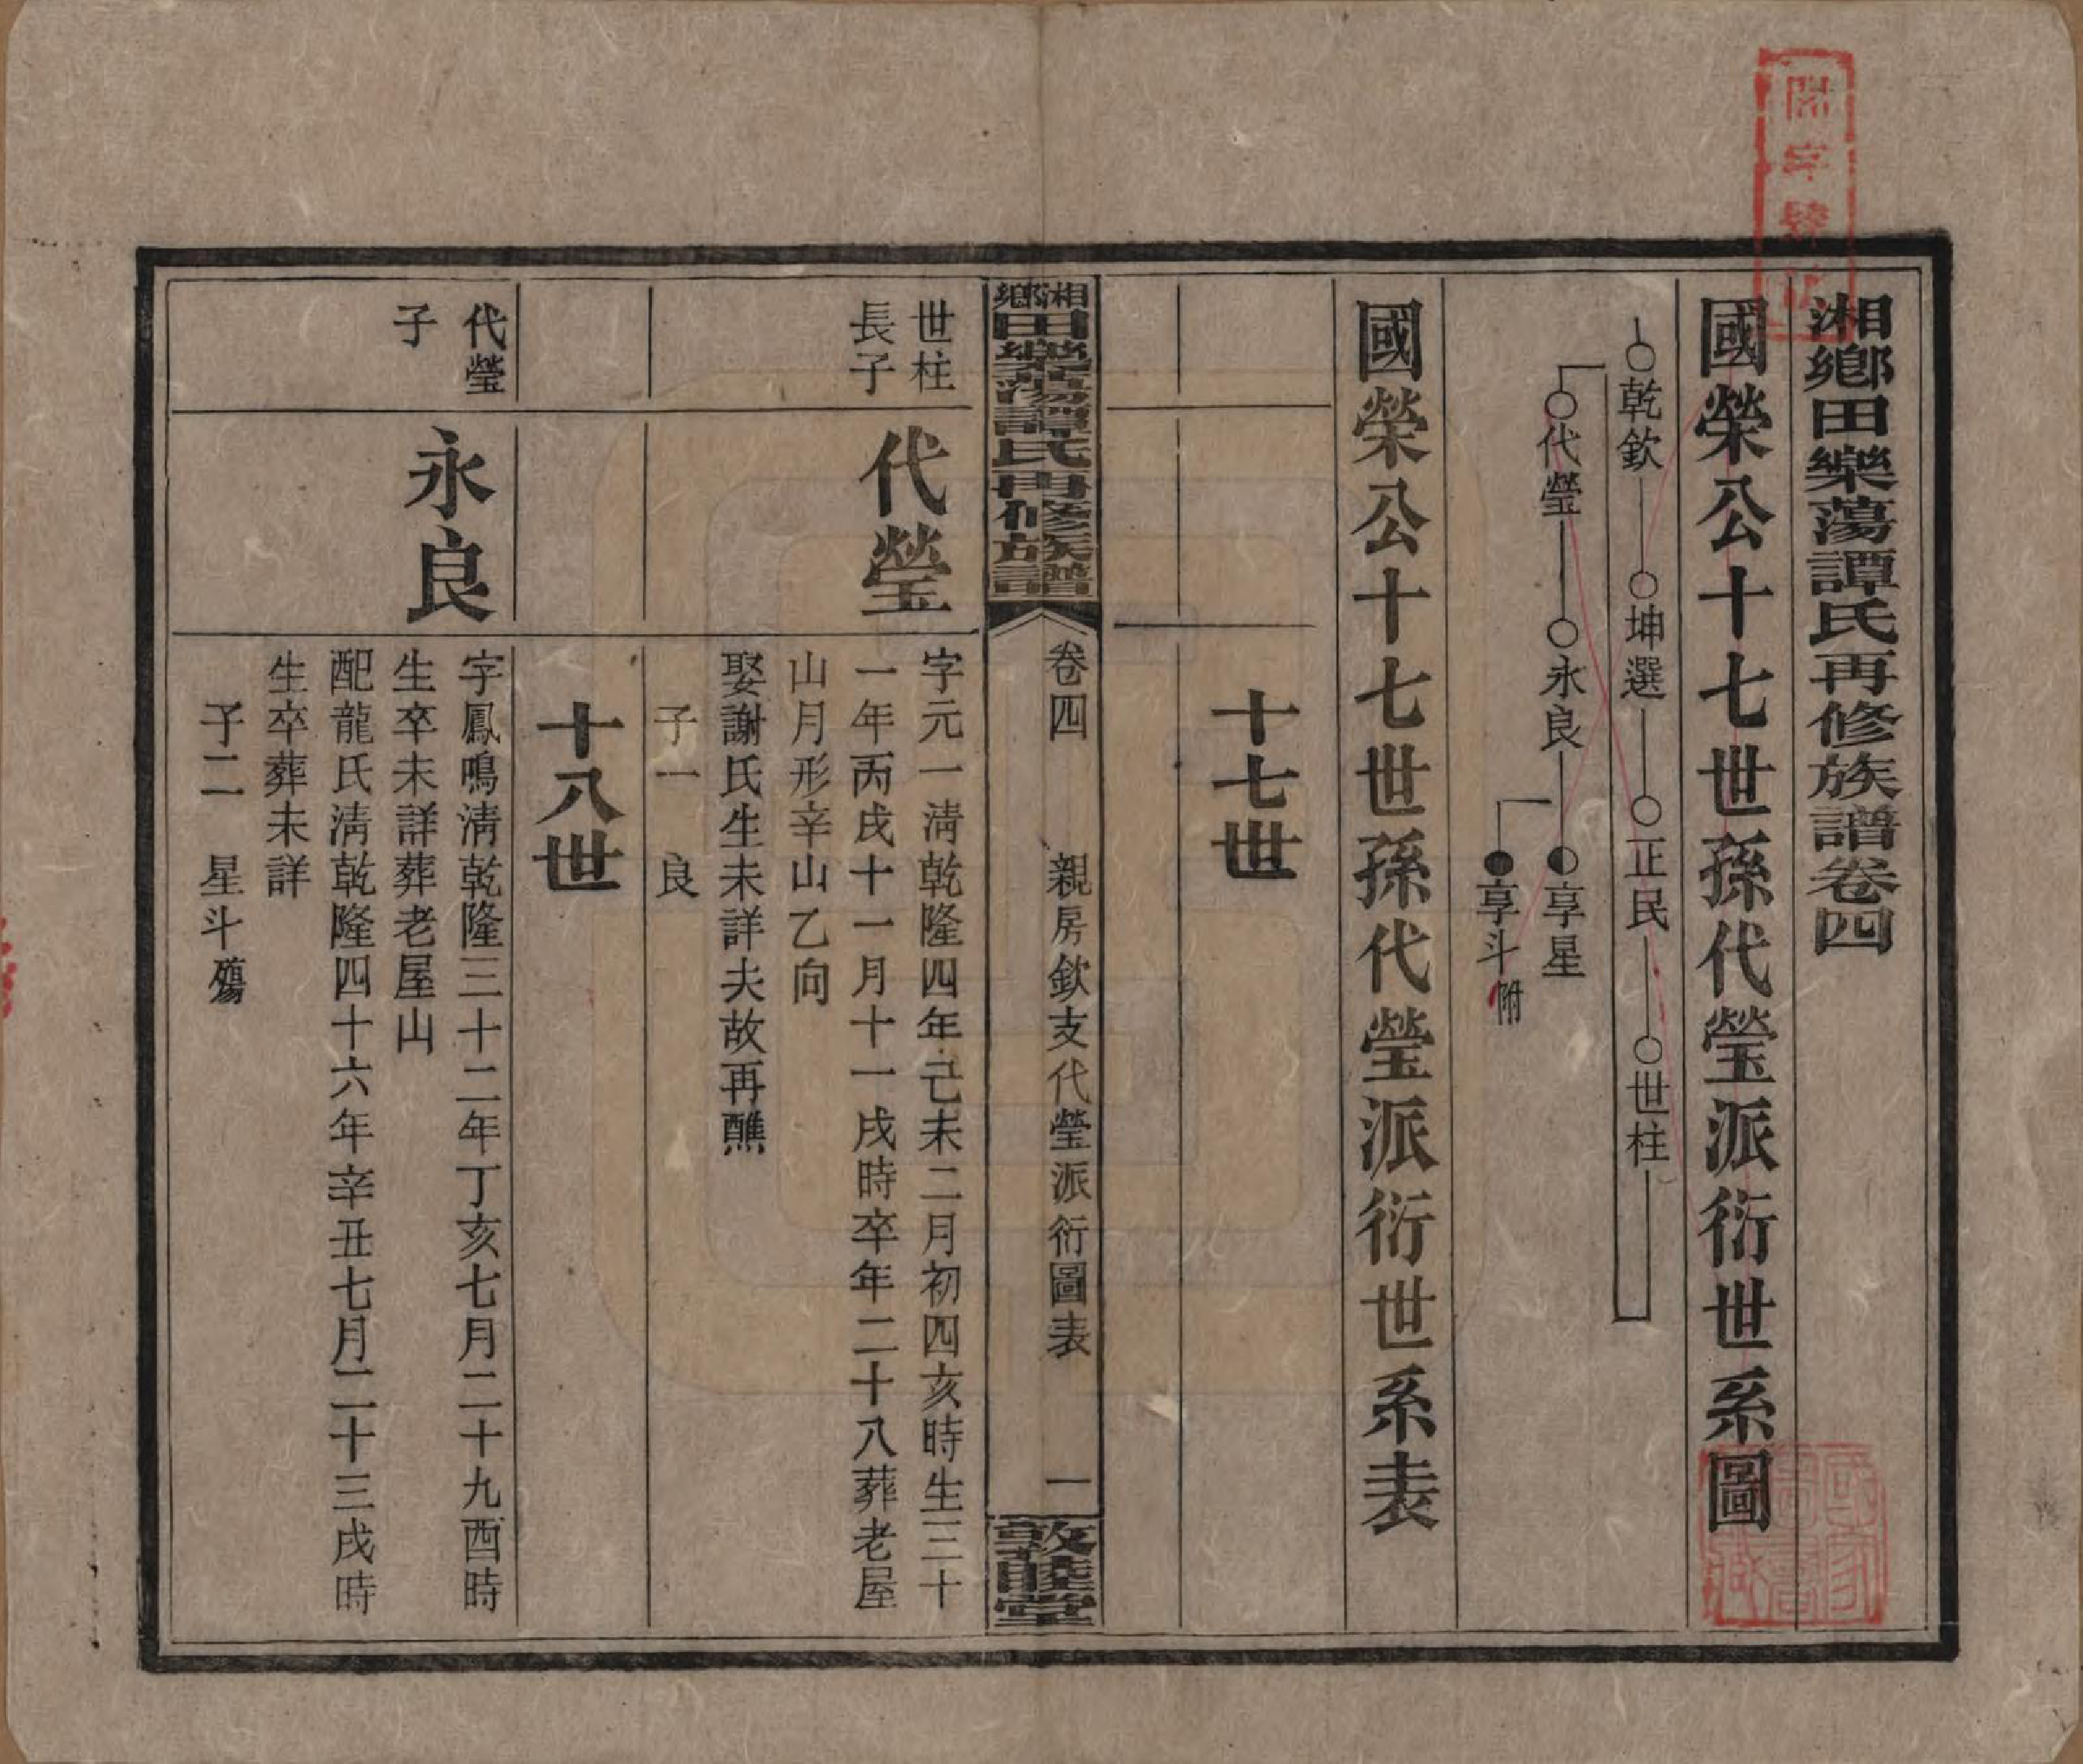 湘鄉田樂蕩譚氏再修族譜卷四
國榮公十七世孫代瑩派衍世系圖
乾欽 坤選 正民 世柱
代瑩 永良 享星
享斗附
國榮公十七世孫代瑩派衍世系表
十七世
湘鄉田樂蕩譚氏再修族譜 卷四 親房欽支代瑩派衍圖表 一 敦睦堂
世柱
長子
代瑩
字元一淸乾隆四年己未二月初四亥時生三十
一年丙戌十一月十一戌時卒年二十八葬老屋
山月形辛山乙向
娶謝氏生未詳夫故再醮
子一 良
十八世
代瑩
子
永良
字鳳鳴淸乾隆三十二年丁亥七月二十九酉時
生卒未詳葬老屋山
配龍氏淸乾隆四十六年辛丑七月二十三戌時
生卒葬未詳
子二 星斗殤